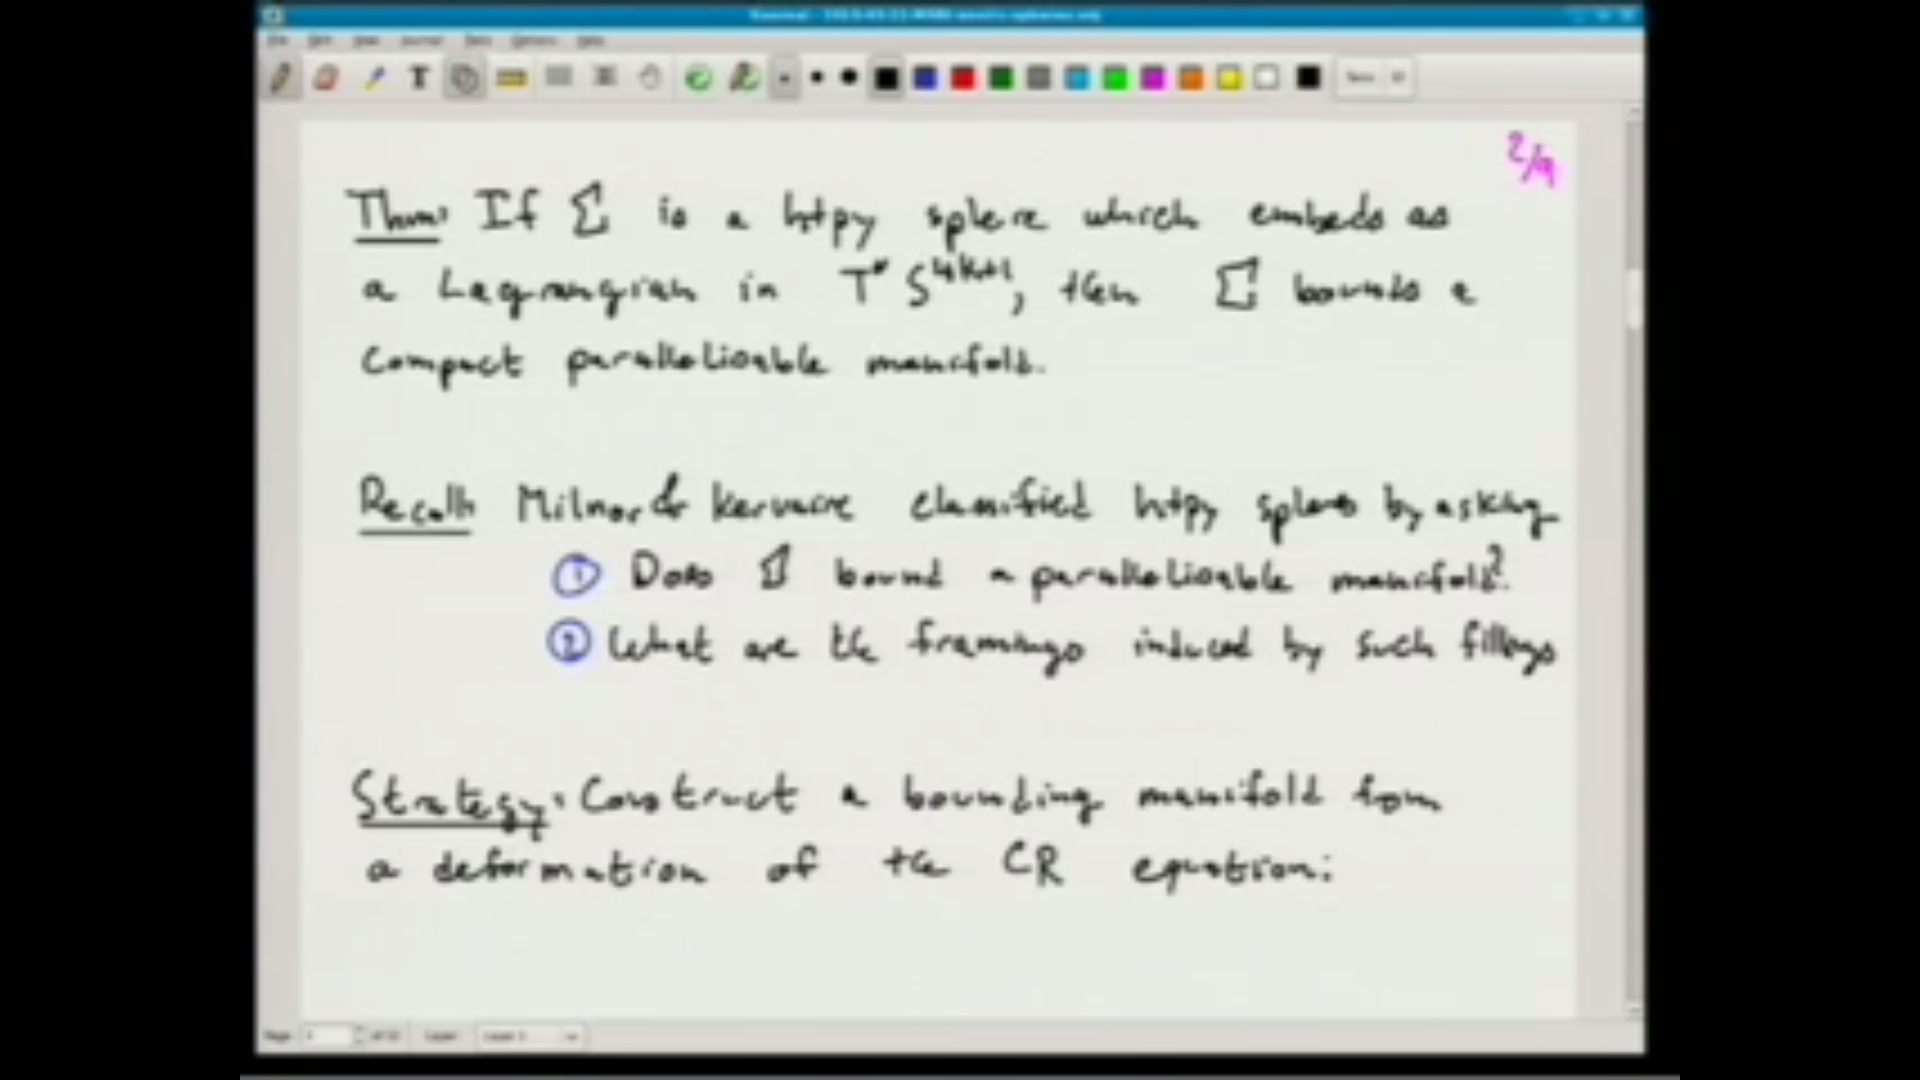 2/9
Thm: If Σ is a htpy sphere which embeds as
a Lagrangian in T*S^{4k+1}, then Σ bounds a
compact parallelisable manifold.
Recall: Milnor & Kervaire classified htpy spheres by asking
① Does Σ bound a parallelisable manifold?
② What are the framings induced by such fillings
Strategy: Construct a bounding manifold from
a deformation of the CR equation: